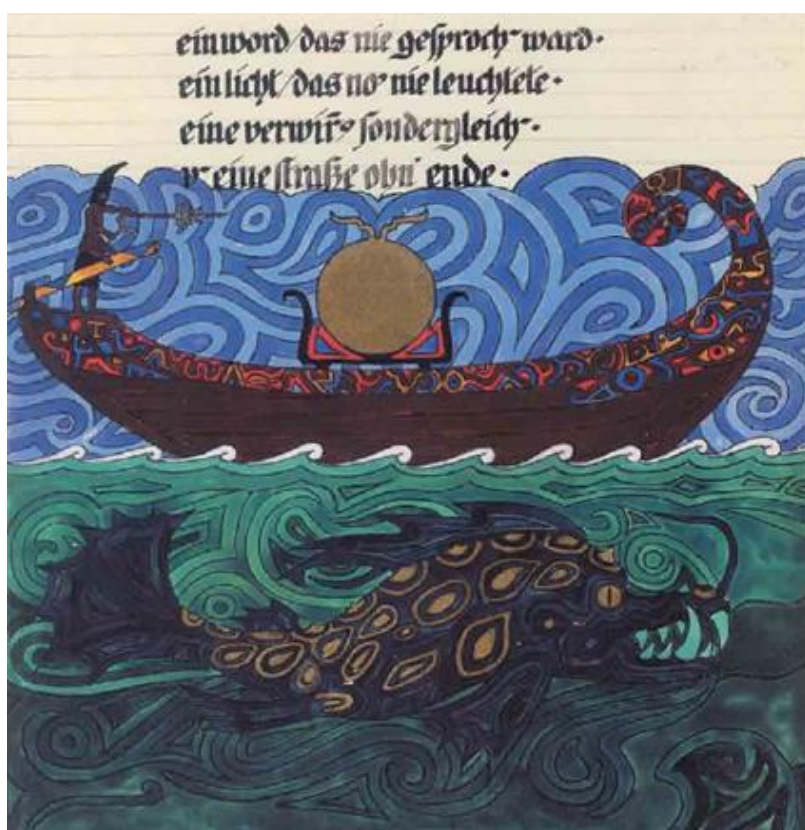 ein word/das nie gesproch‾ ward·
ein licht/das no‾ nie leuchtete·
eine verwir̄g sondergleich‾·
v‾ eine straße ohn' ende·